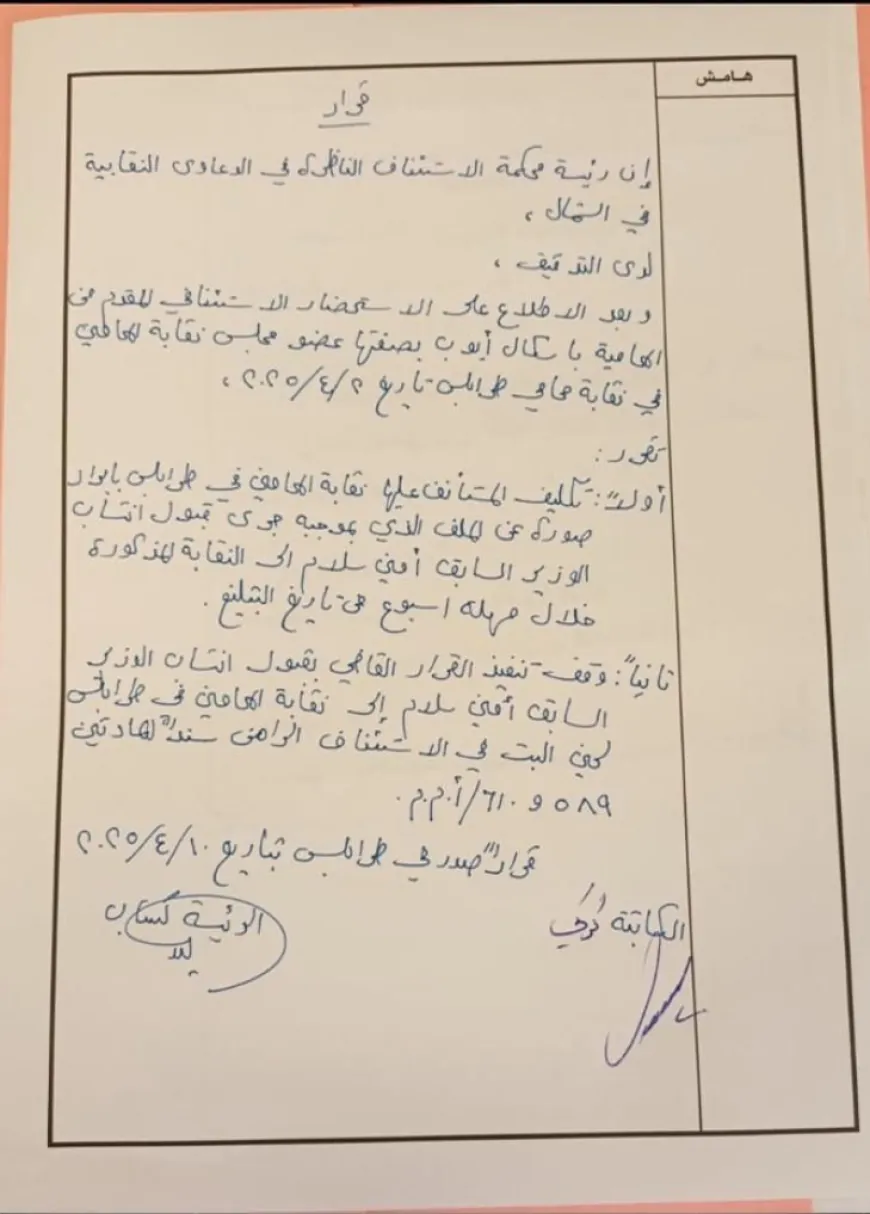 هامش
قرار
إن رئيسة محكمة الاستئناف الناظرة في الدعاوى النقابية
في الشمال ،
لدى التدقيق ،
وبعد الاطلاع على الاستحضار الاستئنافي المقدم من
المحامية باسكال أيوب بصفتها عضو مجلس نقابة المحامين
في نقابة محامي طرابلس تاريخ ٢٠٢٥/٤/٢ ،
تقرر :
أولاً : تكليف المستأنف عليها نقابة المحامين في طرابلس بابراز
صورة عن الملف الذي بموجبه جرى قبول انتساب
الوزير السابق أمين سلام الى النقابة المذكورة
خلال مهلة اسبوع من تاريخ التبليغ .
ثانياً : وقف تنفيذ القرار القاضي بقبول انتساب الوزير
السابق أمين سلام إلى نقابة المحامين في طرابلس
لحين البت في الاستئناف الراهن سنداً للمادتين
٥٨٩ و ٦١٠/أ.م.م.
قراراً صدر في طرابلس بتاريخ ٢٠٢٥/٤/١٠
الكاتبة الرئيسة